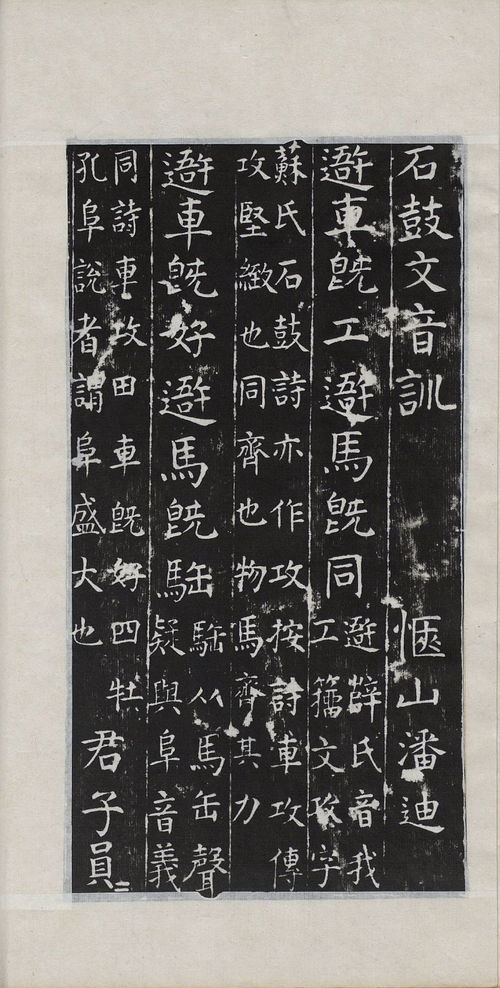 石鼓文音訓 愜山潘迪
車旣工 馬旣同
薛氏音我
工籀文攻字
蘇氏石鼓詩亦作攻按詩車攻傳
攻堅緻也同齊也物馬齊其力
車旣好 馬旣
从馬缶聲
疑與阜音義
同詩車攻田車旣好四牡
孔阜說者謂阜盛大也
君子員=